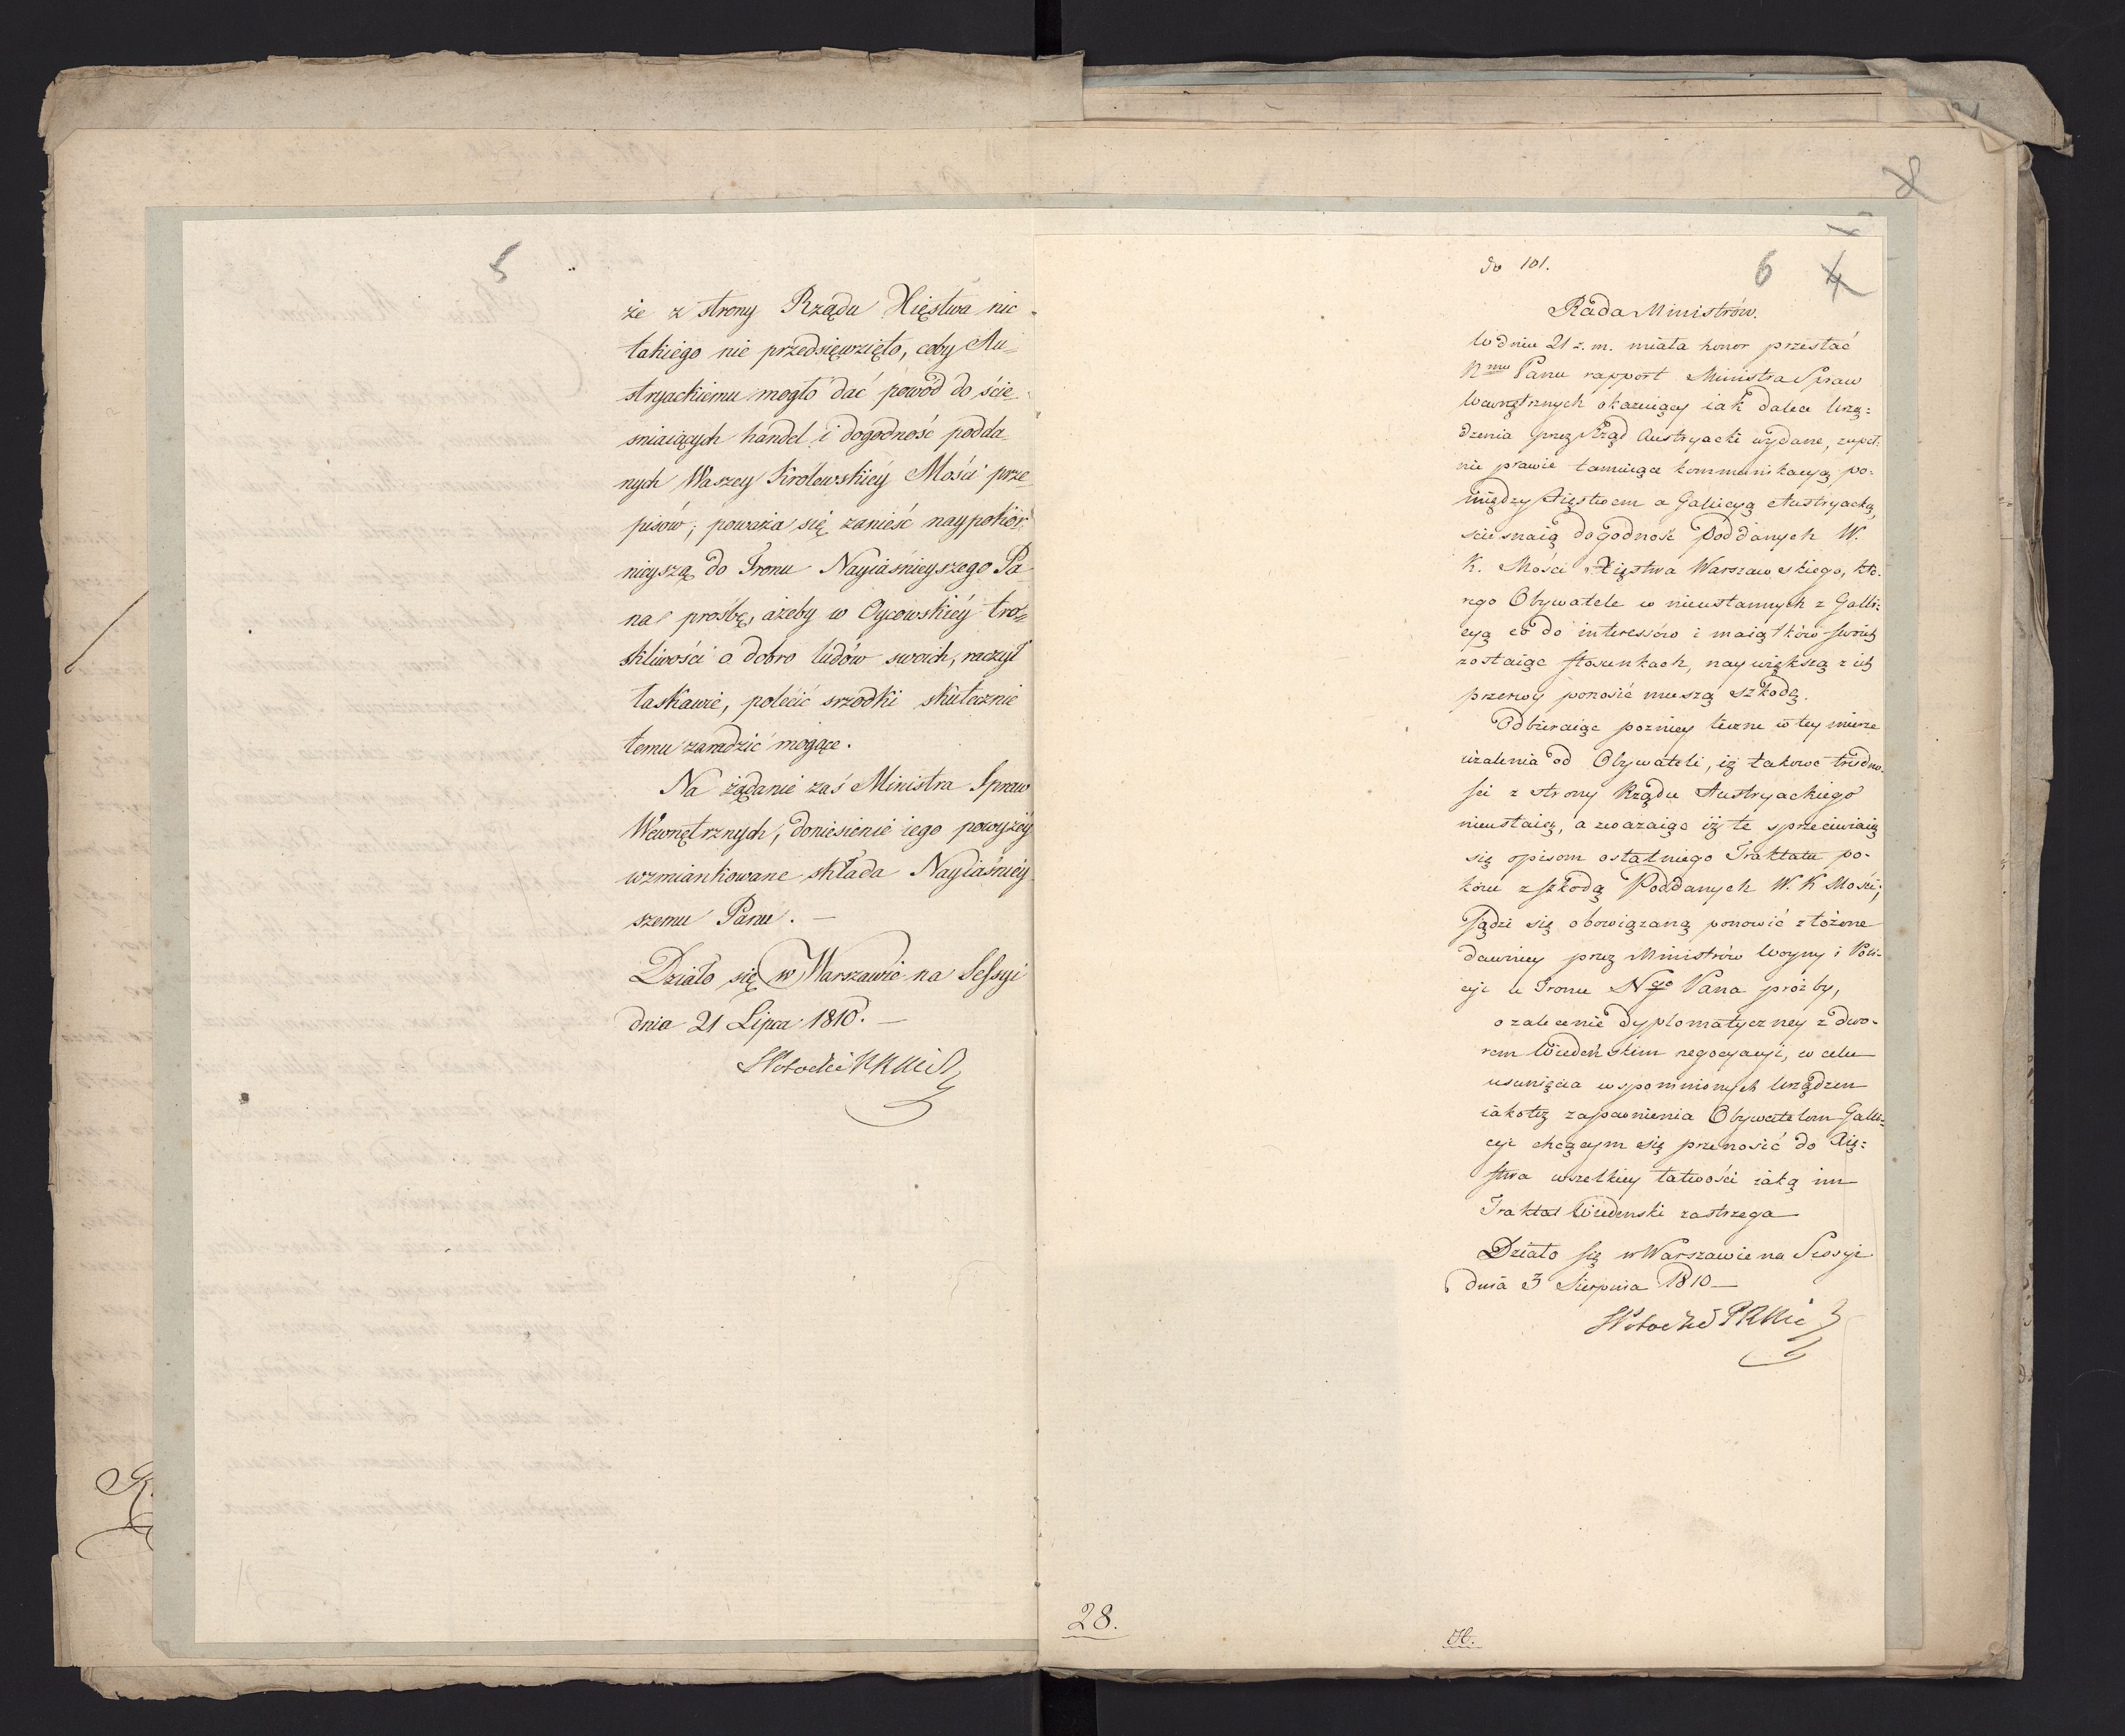 5
że z strony Rządu Xięstwa nic
takiego nie przedsięwzięto, coby Au=
stryackiemu mogło dać powód do ście=
sniaiących handel i dogodność podda=
nych Waszey Królewskiéy Mości prze=
pisów; poważa się zanieść naypokór=
nieyszą do Tronu Nayiaśnieyszego Pa=
na prośbę, ażeby w Oycowskiéy tro=
skliwości o dobro ludów swoich, raczył
łaskawie, polécić srzodki skutecznie
temu zaradzić mogące.
Na żądanie zaś Ministra Spraw
Wewnętrznych, doniesienie iego powyżéy
wzmiankowane składa Nayiaśniéy=
szemu Panu. —
Działo się w Warszawie na Sessyi
dnia 21 Lipca 1810. —
8
do 101.
6 4
Rada Ministrów.
W dniu 21 z. m. miała honor przesłać
Nmu Panu rapport Ministra Spraw
Wewnętrznych okazuiący iak dalece Urzą=
dzenia przez Rząd Austryacki wydane, zupeł=
nie prawie tamuiące kommunikacyą po=
między Xięstwem a Galicyą Austryacką,
sciesnaią dogodność Poddanych W.
K. Mości Xięstwa Warszawskiego, któ=
rego Obywatele w nieustannych z Galli=
cyą co do interessów i maiątków swoich
zostaiąc stosunkach, naywiększą z ich
przerwy ponosić muszą szkodę.
Odbieraiąc pozniey liczne w tey mierze
użalenia od Obywateli, iż takowe trudno=
sci z strony Rządu Austryackiego
nieustaią, a zważaiąc iż te sprzeciwiaią
się opisom ostatniego Traktatu po=
koiu z szkodą Poddanych W. K Mości;
sądzi się obowiązaną ponowić złożone
dawniey przez Ministrów Woyny i Poli=
cyi u Tronu Ngo Pana prózby,
o zalecenie dyplomatyczney z dwo=
rem Wiedeńskim negocyacyi, w celu
usunięcia wspomnionych Urządzen
iakotéz zapewnienia Obywatelom Galli=
cyi chcącym się przenosić do Xię=
stwa wszelkiey łatwości iaką im
Traktat Wiedenski zastrzega
Działo się w Warszawie na Sessyi
dnia 3 Sierpnia 1810 —
28.